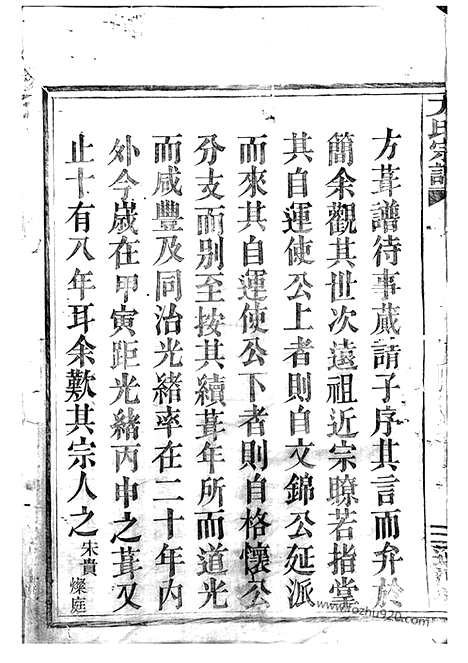 氏宗譜
方葺譜待事蕆請予序其言而弁於
簡余觀其世次遠祖近宗瞭若指掌
其自運使公上者則自文錦公延派
而來其自運使公下者則自格懷公
分支而別至按其續葺年所而道光
而咸豐及同治光緒率在二十年內
外今歲在甲寅距光緒丙申之葺又
止十有八年耳余歎其宗人之朱貴燦庭
www.fozhu920.com